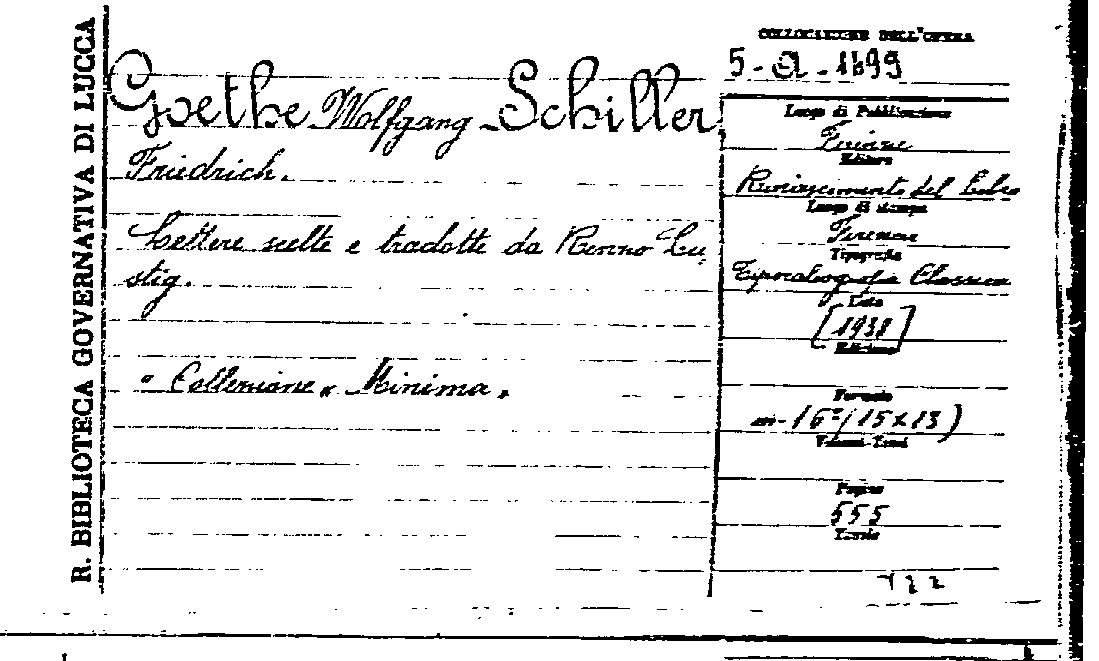 R. BIBLIOTECA GOVERNATIVA DI LUCCA
Goethe Wolfgang - Schiller
Friedrich.
Lettere scelte e tradotte da Renno Lu-
stig.
" Collezione „ Minima „
COLLOCAZIONE DELL'OPERA
5 - A - 1699
Luogo di Pubblicazione
Firenze
Editore
Rinascimento del Libro
Luogo di stampa
Firenze
Tipografia
Tipocalcografia Classica
Data
[1938]
Edizione
Formato
in-16º (15x13)
Volumi-Tomi
Pagine
555
Tavole